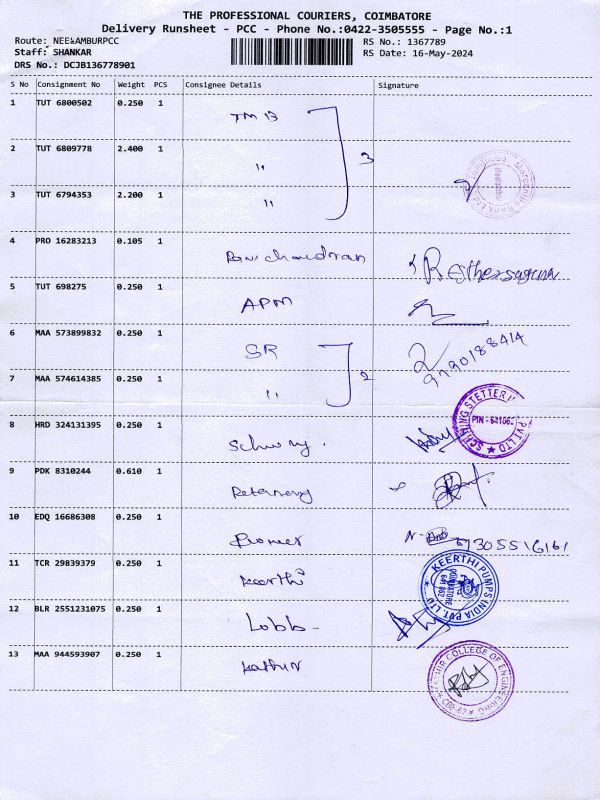 THE PROFESSIONAL COURIERS, COIMBATORE
Delivery Runsheet - PCC - Phone No.:0422-3505555 - Page No.:1
Route: NEELAMBURPCC RS No.: 1367789
Staff: SHANKAR RS Date: 16-May-2024
DRS No.: DCJB136778901
S No Consignment No Weight PCS Consignee Details Signature
1 TUT 6800502 0.250 1 TMB
2 TUT 6809778 2.400 1 " 3
3 TUT 6794353 2.200 1 "
4 PRO 16283213 0.105 1
5 TUT 698275 0.250 1 APM
6 MAA 573899832 0.250 1 SR 9790188414
7 MAA 574614385 0.250 1 " 2
8 HRD 324131395 0.250 1
9 PDK 8310244 0.610 1
10 EDQ 16686308 0.250 1
11 TCR 29839379 0.250 1 Keerthi KEERTHI PUMPS INDIA PVT. LTD COIMBATORE 641 062
12 BLR 2551231075 0.250 1
13 MAA 944593907 0.250 1 COLLEGE OF ENGINEERING